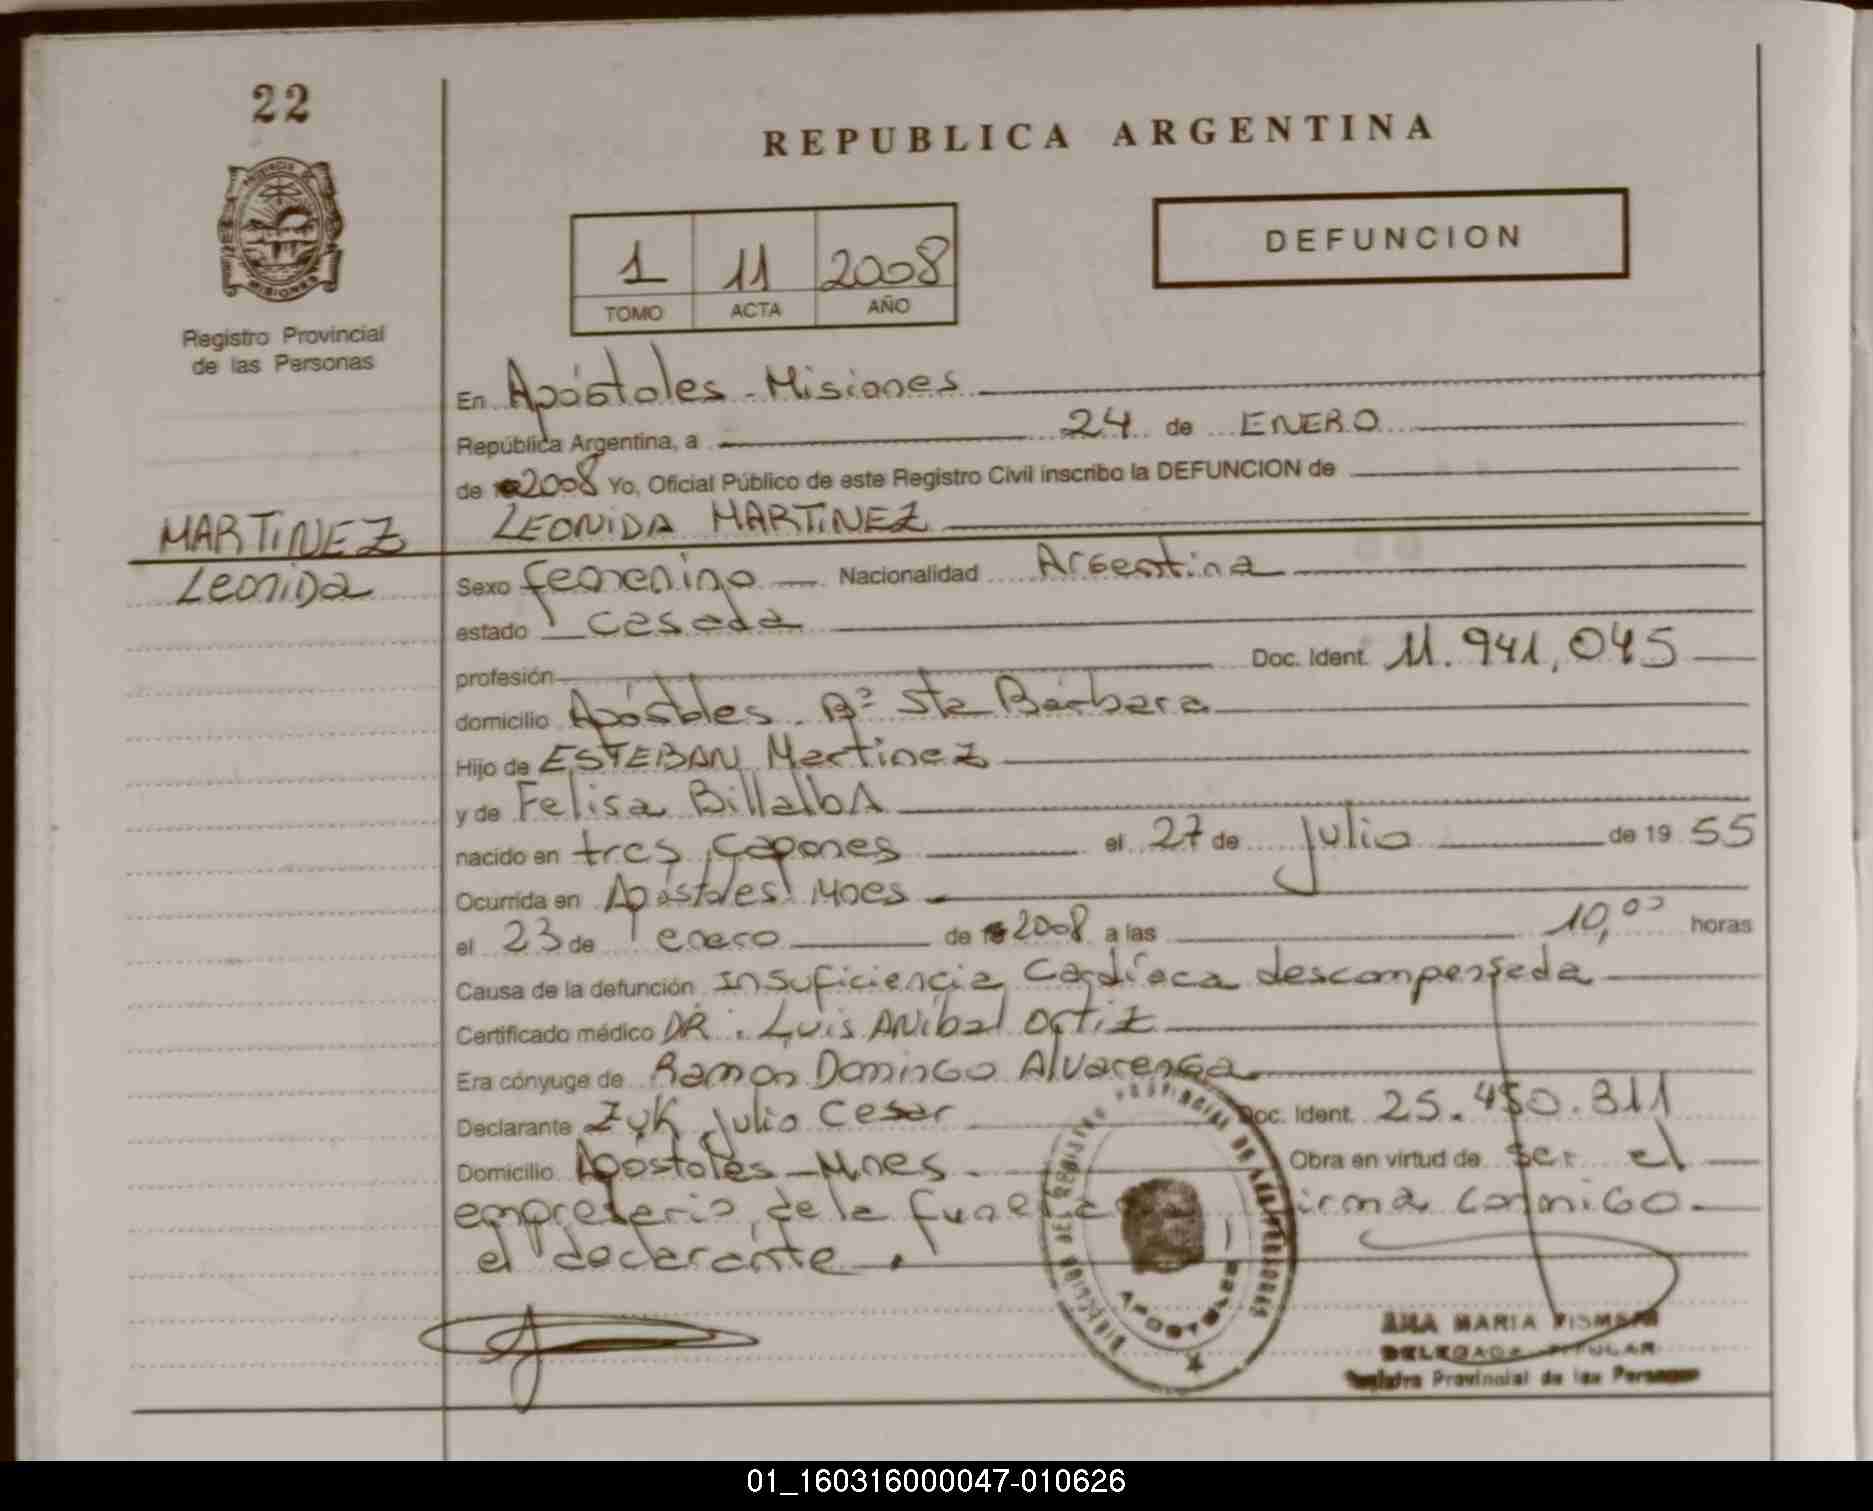 22
REPUBLICA ARGENTINA
PROVINCIA DE MISIONES
DEFUNCION
1 11 2008
TOMO ACTA AÑO
Registro Provincial
de las Personas
En Apóstoles - Misiones
República Argentina, a 24 de ENERO
de 2008 Yo, Oficial Público de este Registro Civil inscribo la DEFUNCION de
MARTINEZ LEONIDA MARTINEZ
Leonida Sexo femenino Nacionalidad Argentina
estado casada
profesión Doc. Ident. 11.941,045
domicilio Apóstoles. Bº Sta Bárbara
Hijo de ESTEBAN Martinez
y de Felisa BillalbA
nacido en tres Capones el 27 de julio de 1955
Ocurrida en Apóstoles Mnes
el 23 de enero de 2008 a las 10,00 horas
Causa de la defunción insuficiencia Cardíaca descompensada
Certificado médico DR. Luis ANibal Ortiz
Era cónyuge de Ramon Domingo Alvarenga
Declarante Zuk Julio Cesar Doc. Ident. 25.450.311
Domicilio Apóstoles - Mnes. Obra en virtud de ser el
empresario de la funeraria firma conmigo.
el declarante.
DIRECCION DEL REGISTRO PROVINCIAL DE LAS PERSONAS
APOSTOLES
ANA MARIA
DELEGADA TITULAR
Registro Provincial de las Personas
01_160316000047-010626